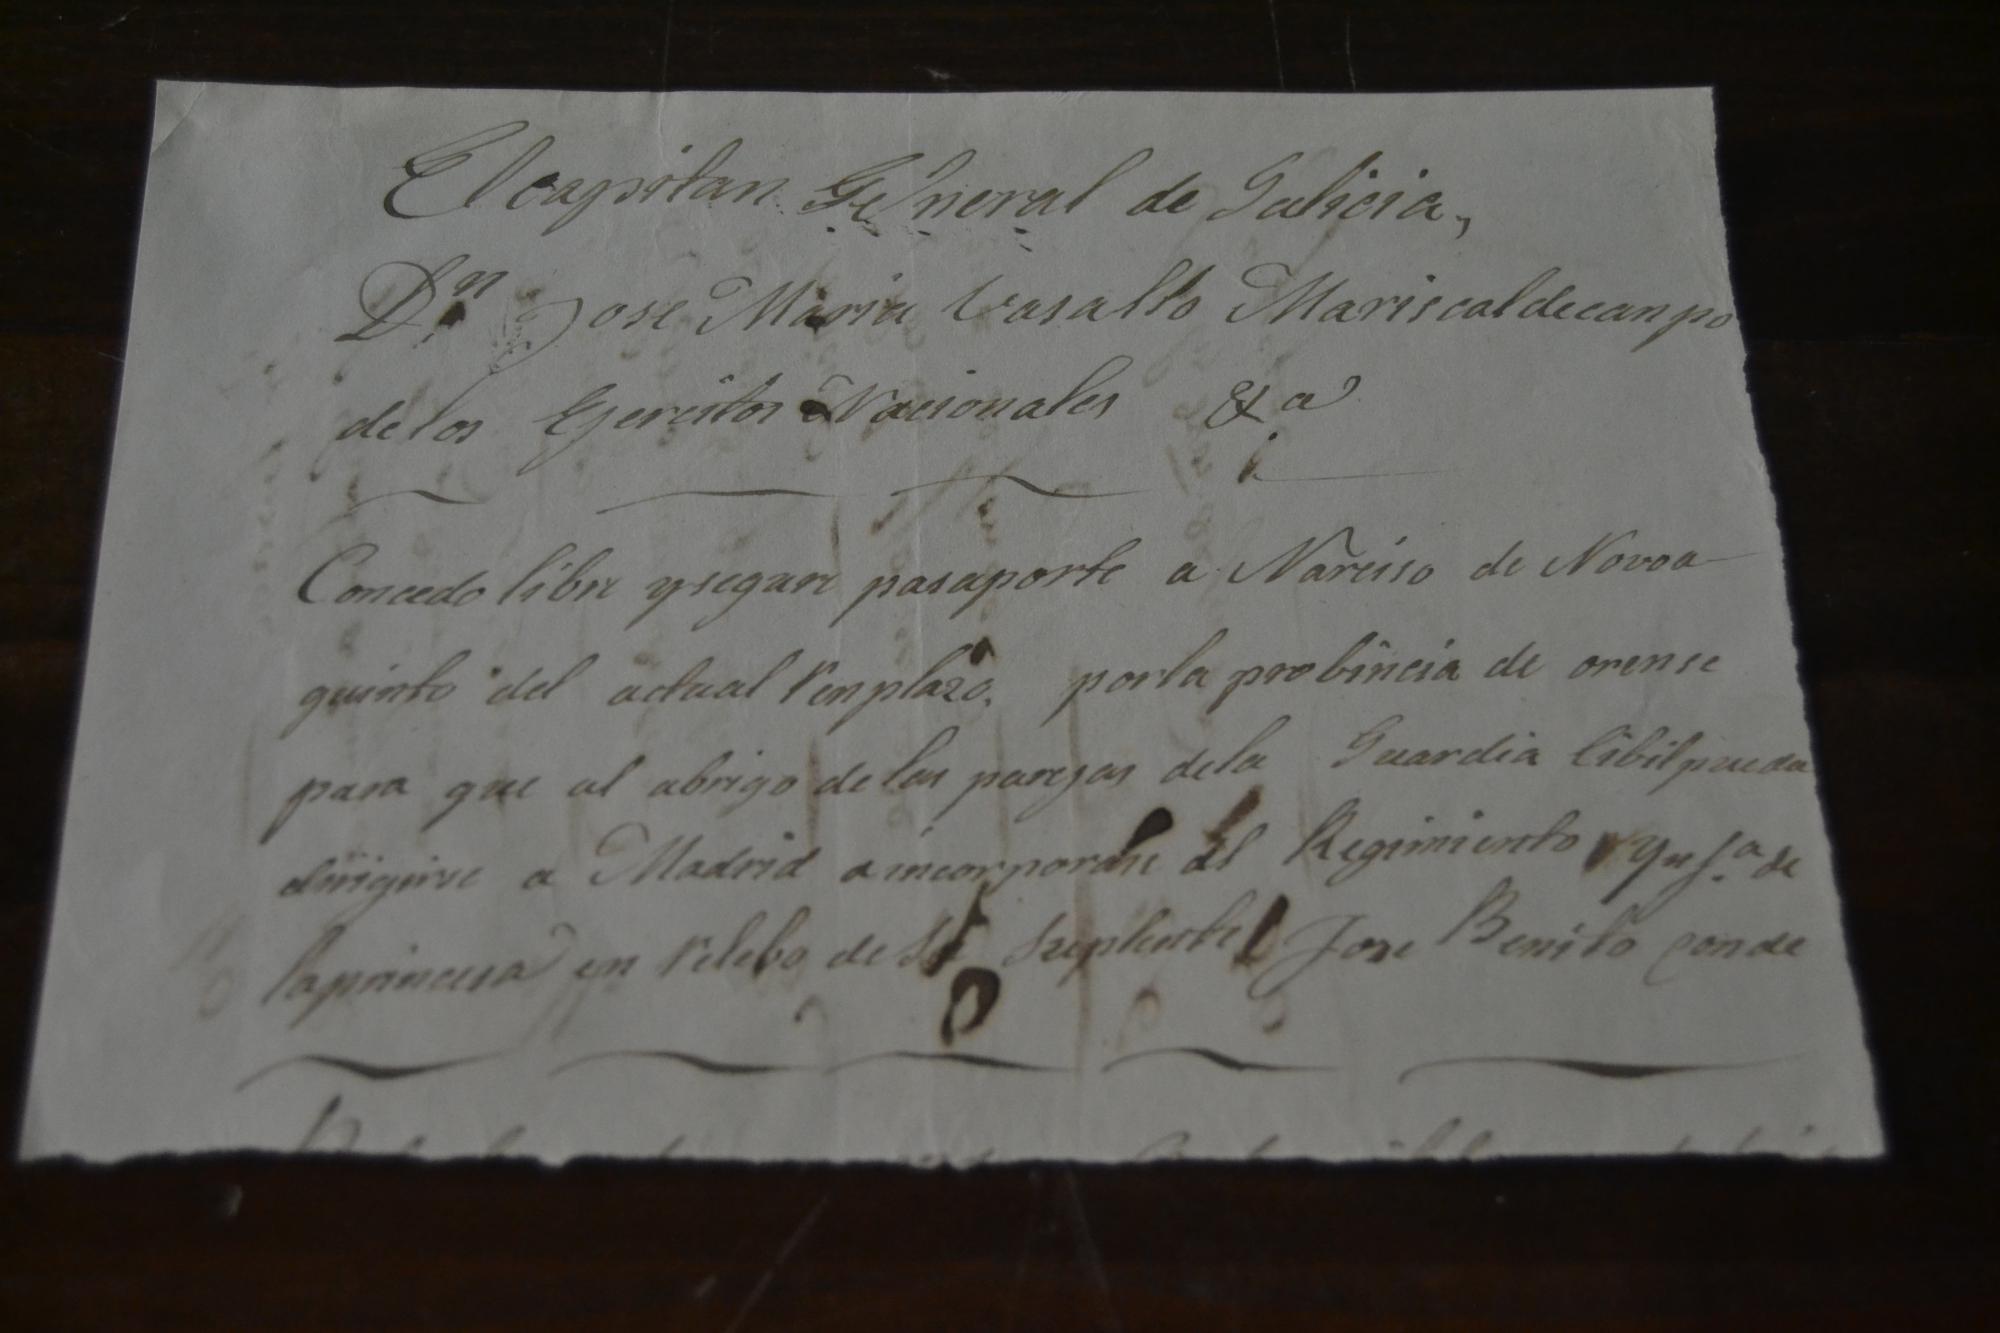 El capitan General de Galicia,
Dn Jose Maria Vasallo Mariscal de canpo
de los Egercitos Nacionales &a
Concedo libre y seguro pasaporte a Narciso de Novoa
quinto del actual renplazo, por la probincia de orense
para que al abrigo de las parejas de la Guardia Cibil pueda
dirigirse a Madrid a incorporarse al Regimiento Ynfa de
la princesa en relebo de su suplente Jose Benito Conde